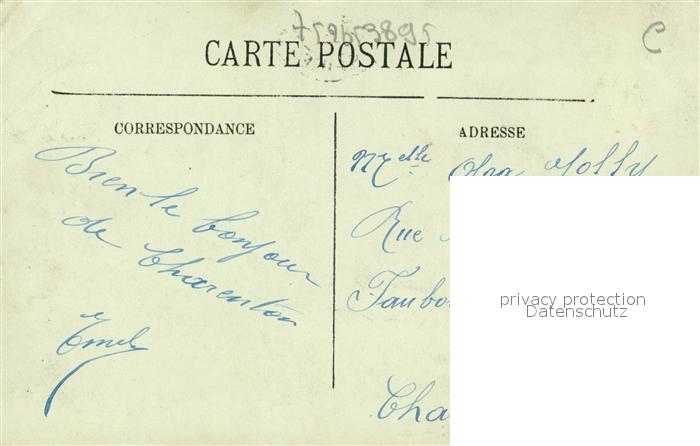 759653895
C
CARTE POSTALE
CORRESPONDANCE
Bien le bonjour
de Charenton
ADRESSE
Melle Olga
Rue
Faubo
Cha
privacy protection
Datenschutz